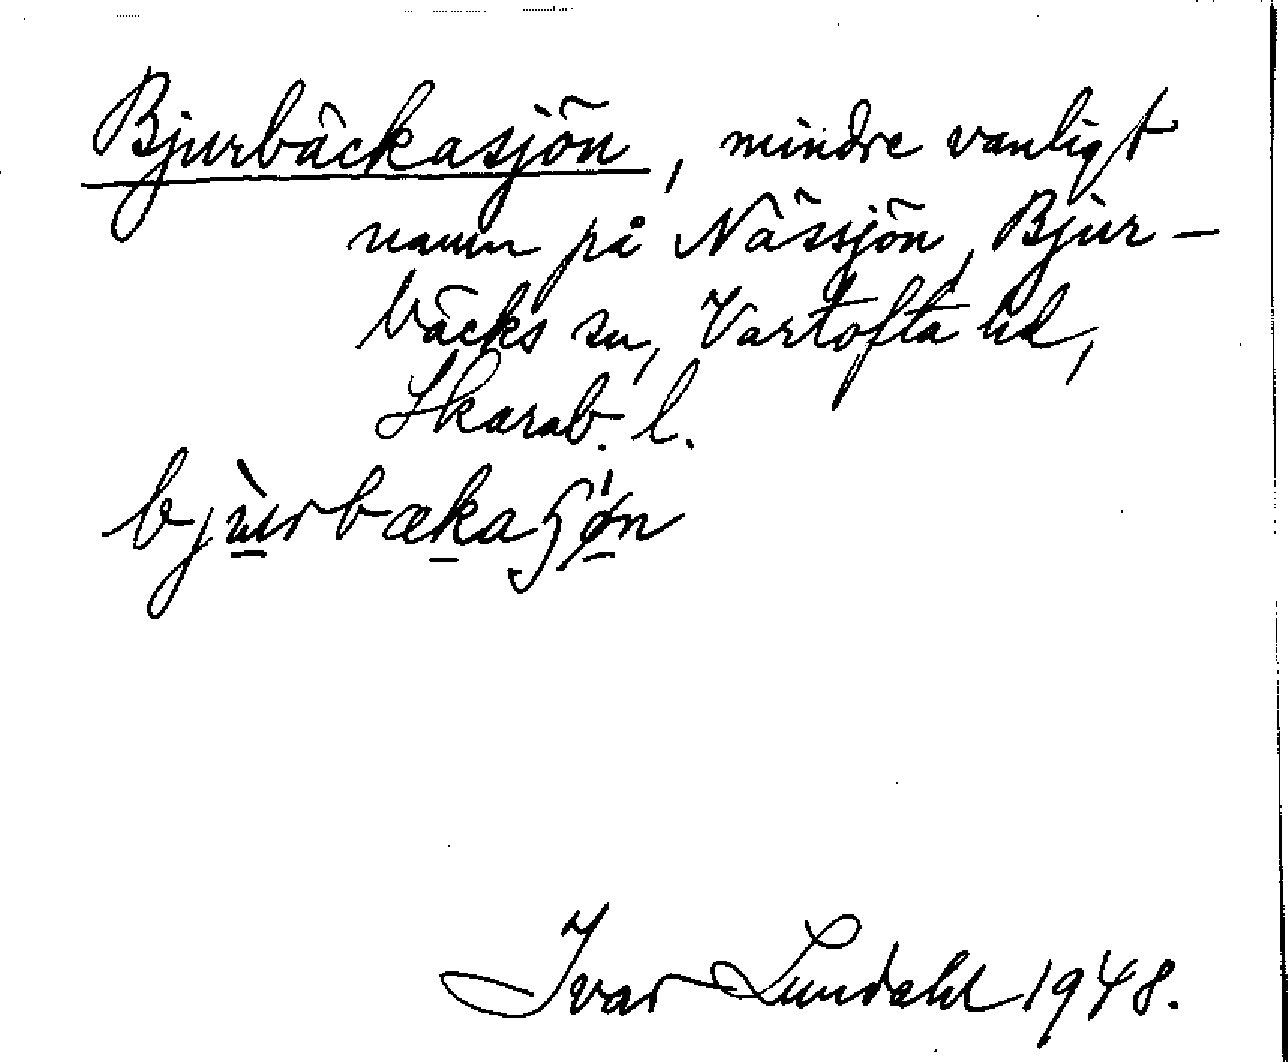 Bjurbäckasjön, mindre vanligt
namn på Nässjön, Bjur-
bäcks sn, Vartofta hd,
Skarab. l.
bjùrbækaʃø̍n
Ivar Lundahl 1948.